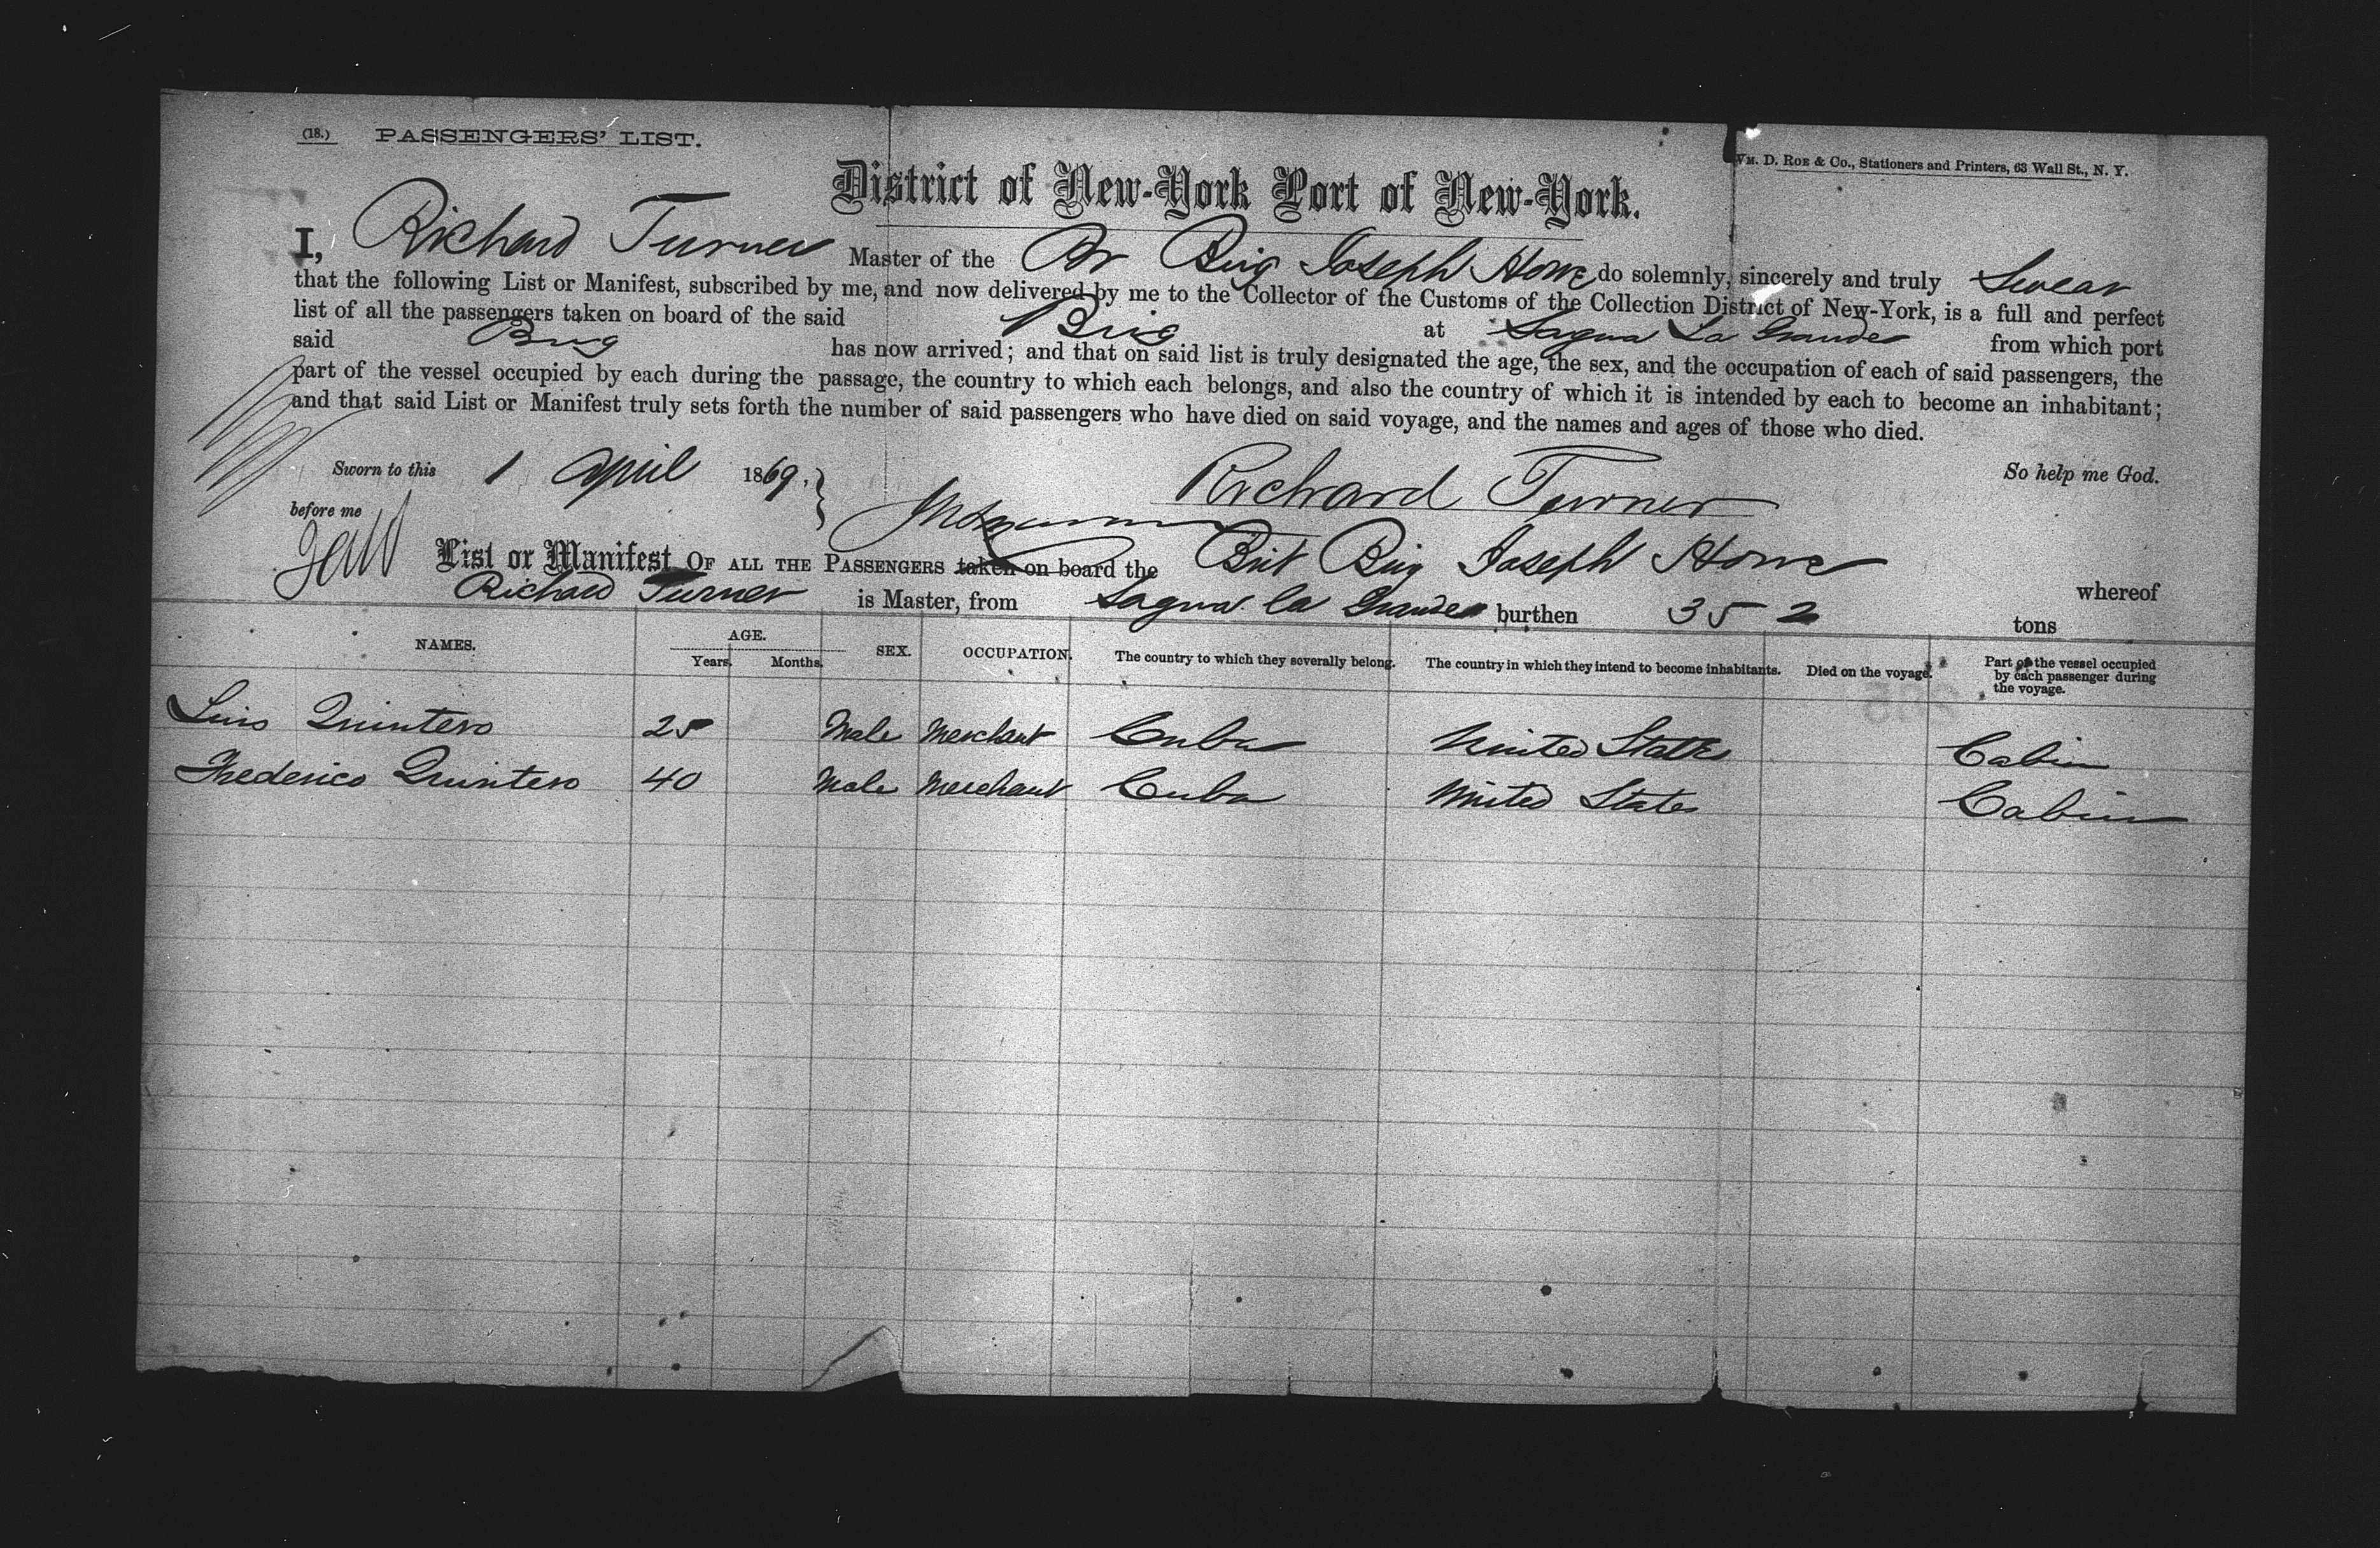 (18.) PASSENGERS' LIST.
WM. D. ROE & Co., Stationers and Printers, 63 Wall St., N. Y.
District of New-York Port of New-York.
I, Richard Turner Master of the Br Brig Joseph Howe do solemnly, sincerely and truly Swear
that the following List or Manifest, subscribed by me, and now delivered by me to the Collector of the Customs of the Collection District of New-York, is a full and perfect
list of all the passengers taken on board of the said Brig at Sagua La Grande from which port
said Brig has now arrived; and that on said list is truly designated the age, the sex, and the occupation of each of said passengers, the
part of the vessel occupied by each during the passage, the country to which each belongs, and also the country of which it is intended by each to become an inhabitant;
and that said List or Manifest truly sets forth the number of said passengers who have died on said voyage, and the names and ages of those who died.
Sworn to this 1 April 1869. Richard Turner So help me God.
before me
List or Manifest OF ALL THE PASSENGERS taken on board the Brit Brig Joseph Howe whereof
Richard Turner is Master, from Sagua la Grande burthen 352 tons
NAMES. AGE. Years. Months. SEX. OCCUPATION. The country to which they severally belong. The country in which they intend to become inhabitants. Died on the voyage. Part of the vessel occupied by each passenger during the voyage.
Luis Quintero 25 Male Merchant Cuba United States Cabin
Frederico Quintero 40 Male Merchant Cuba United States Cabin